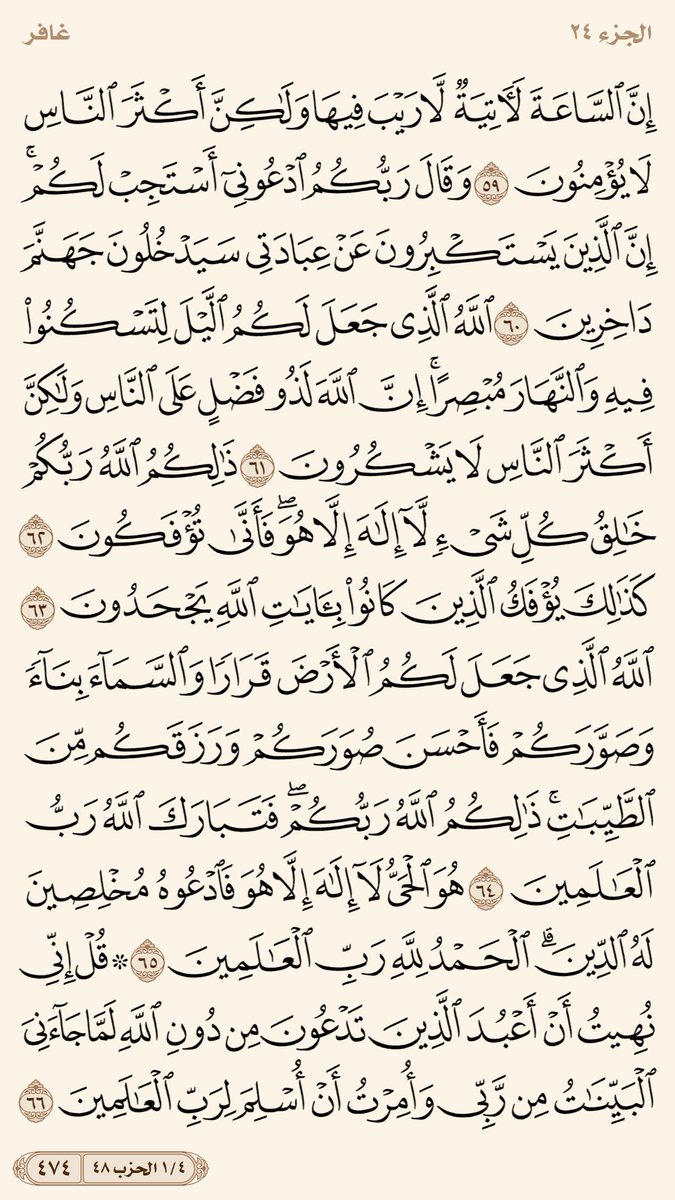 الجزء ٢٤ غافر
إِنَّ ٱلسَّاعَةَ لَأٓتِيَةٌ لَّا رَيْبَ فِيهَا وَلَٰكِنَّ أَكْثَرَ ٱلنَّاسِ
لَا يُؤْمِنُونَ ٥٩ وَقَالَ رَبُّكُمُ ٱدْعُونِىٓ أَسْتَجِبْ لَكُمْ ۚ
إِنَّ ٱلَّذِينَ يَسْتَكْبِرُونَ عَنْ عِبَادَتِى سَيَدْخُلُونَ جَهَنَّمَ
دَاخِرِينَ ٦٠ ٱللَّهُ ٱلَّذِى جَعَلَ لَكُمُ ٱلَّيْلَ لِتَسْكُنُوا۟
فِيهِ وَٱلنَّهَارَ مُبْصِرًا ۚ إِنَّ ٱللَّهَ لَذُو فَضْلٍ عَلَى ٱلنَّاسِ وَلَٰكِنَّ
أَكْثَرَ ٱلنَّاسِ لَا يَشْكُرُونَ ٦١ ذَٰلِكُمُ ٱللَّهُ رَبُّكُمْ
خَٰلِقُ كُلِّ شَىْءٍ لَّآ إِلَٰهَ إِلَّا هُوَ ۖ فَأَنَّىٰ تُؤْفَكُونَ ٦٢
كَذَٰلِكَ يُؤْفَكُ ٱلَّذِينَ كَانُوا۟ بِـَٔايَٰتِ ٱللَّهِ يَجْحَدُونَ ٦٣
ٱللَّهُ ٱلَّذِى جَعَلَ لَكُمُ ٱلْأَرْضَ قَرَارًا وَٱلسَّمَآءَ بِنَآءً
وَصَوَّرَكُمْ فَأَحْسَنَ صُوَرَكُمْ وَرَزَقَكُم مِّنَ
ٱلطَّيِّبَٰتِ ۚ ذَٰلِكُمُ ٱللَّهُ رَبُّكُمْ ۖ فَتَبَارَكَ ٱللَّهُ رَبُّ
ٱلْعَٰلَمِينَ ٦٤ هُوَ ٱلْحَىُّ لَآ إِلَٰهَ إِلَّا هُوَ فَٱدْعُوهُ مُخْلِصِينَ
لَهُ ٱلدِّينَ ۗ ٱلْحَمْدُ لِلَّهِ رَبِّ ٱلْعَٰلَمِينَ ٦٥ * قُلْ إِنِّى
نُهِيتُ أَنْ أَعْبُدَ ٱلَّذِينَ تَدْعُونَ مِن دُونِ ٱللَّهِ لَمَّا جَآءَنِىَ
ٱلْبَيِّنَٰتُ مِن رَّبِّى وَأُمِرْتُ أَنْ أُسْلِمَ لِرَبِّ ٱلْعَٰلَمِينَ ٦٦
١/٤ الحزب ٤٨ ٤٧٤